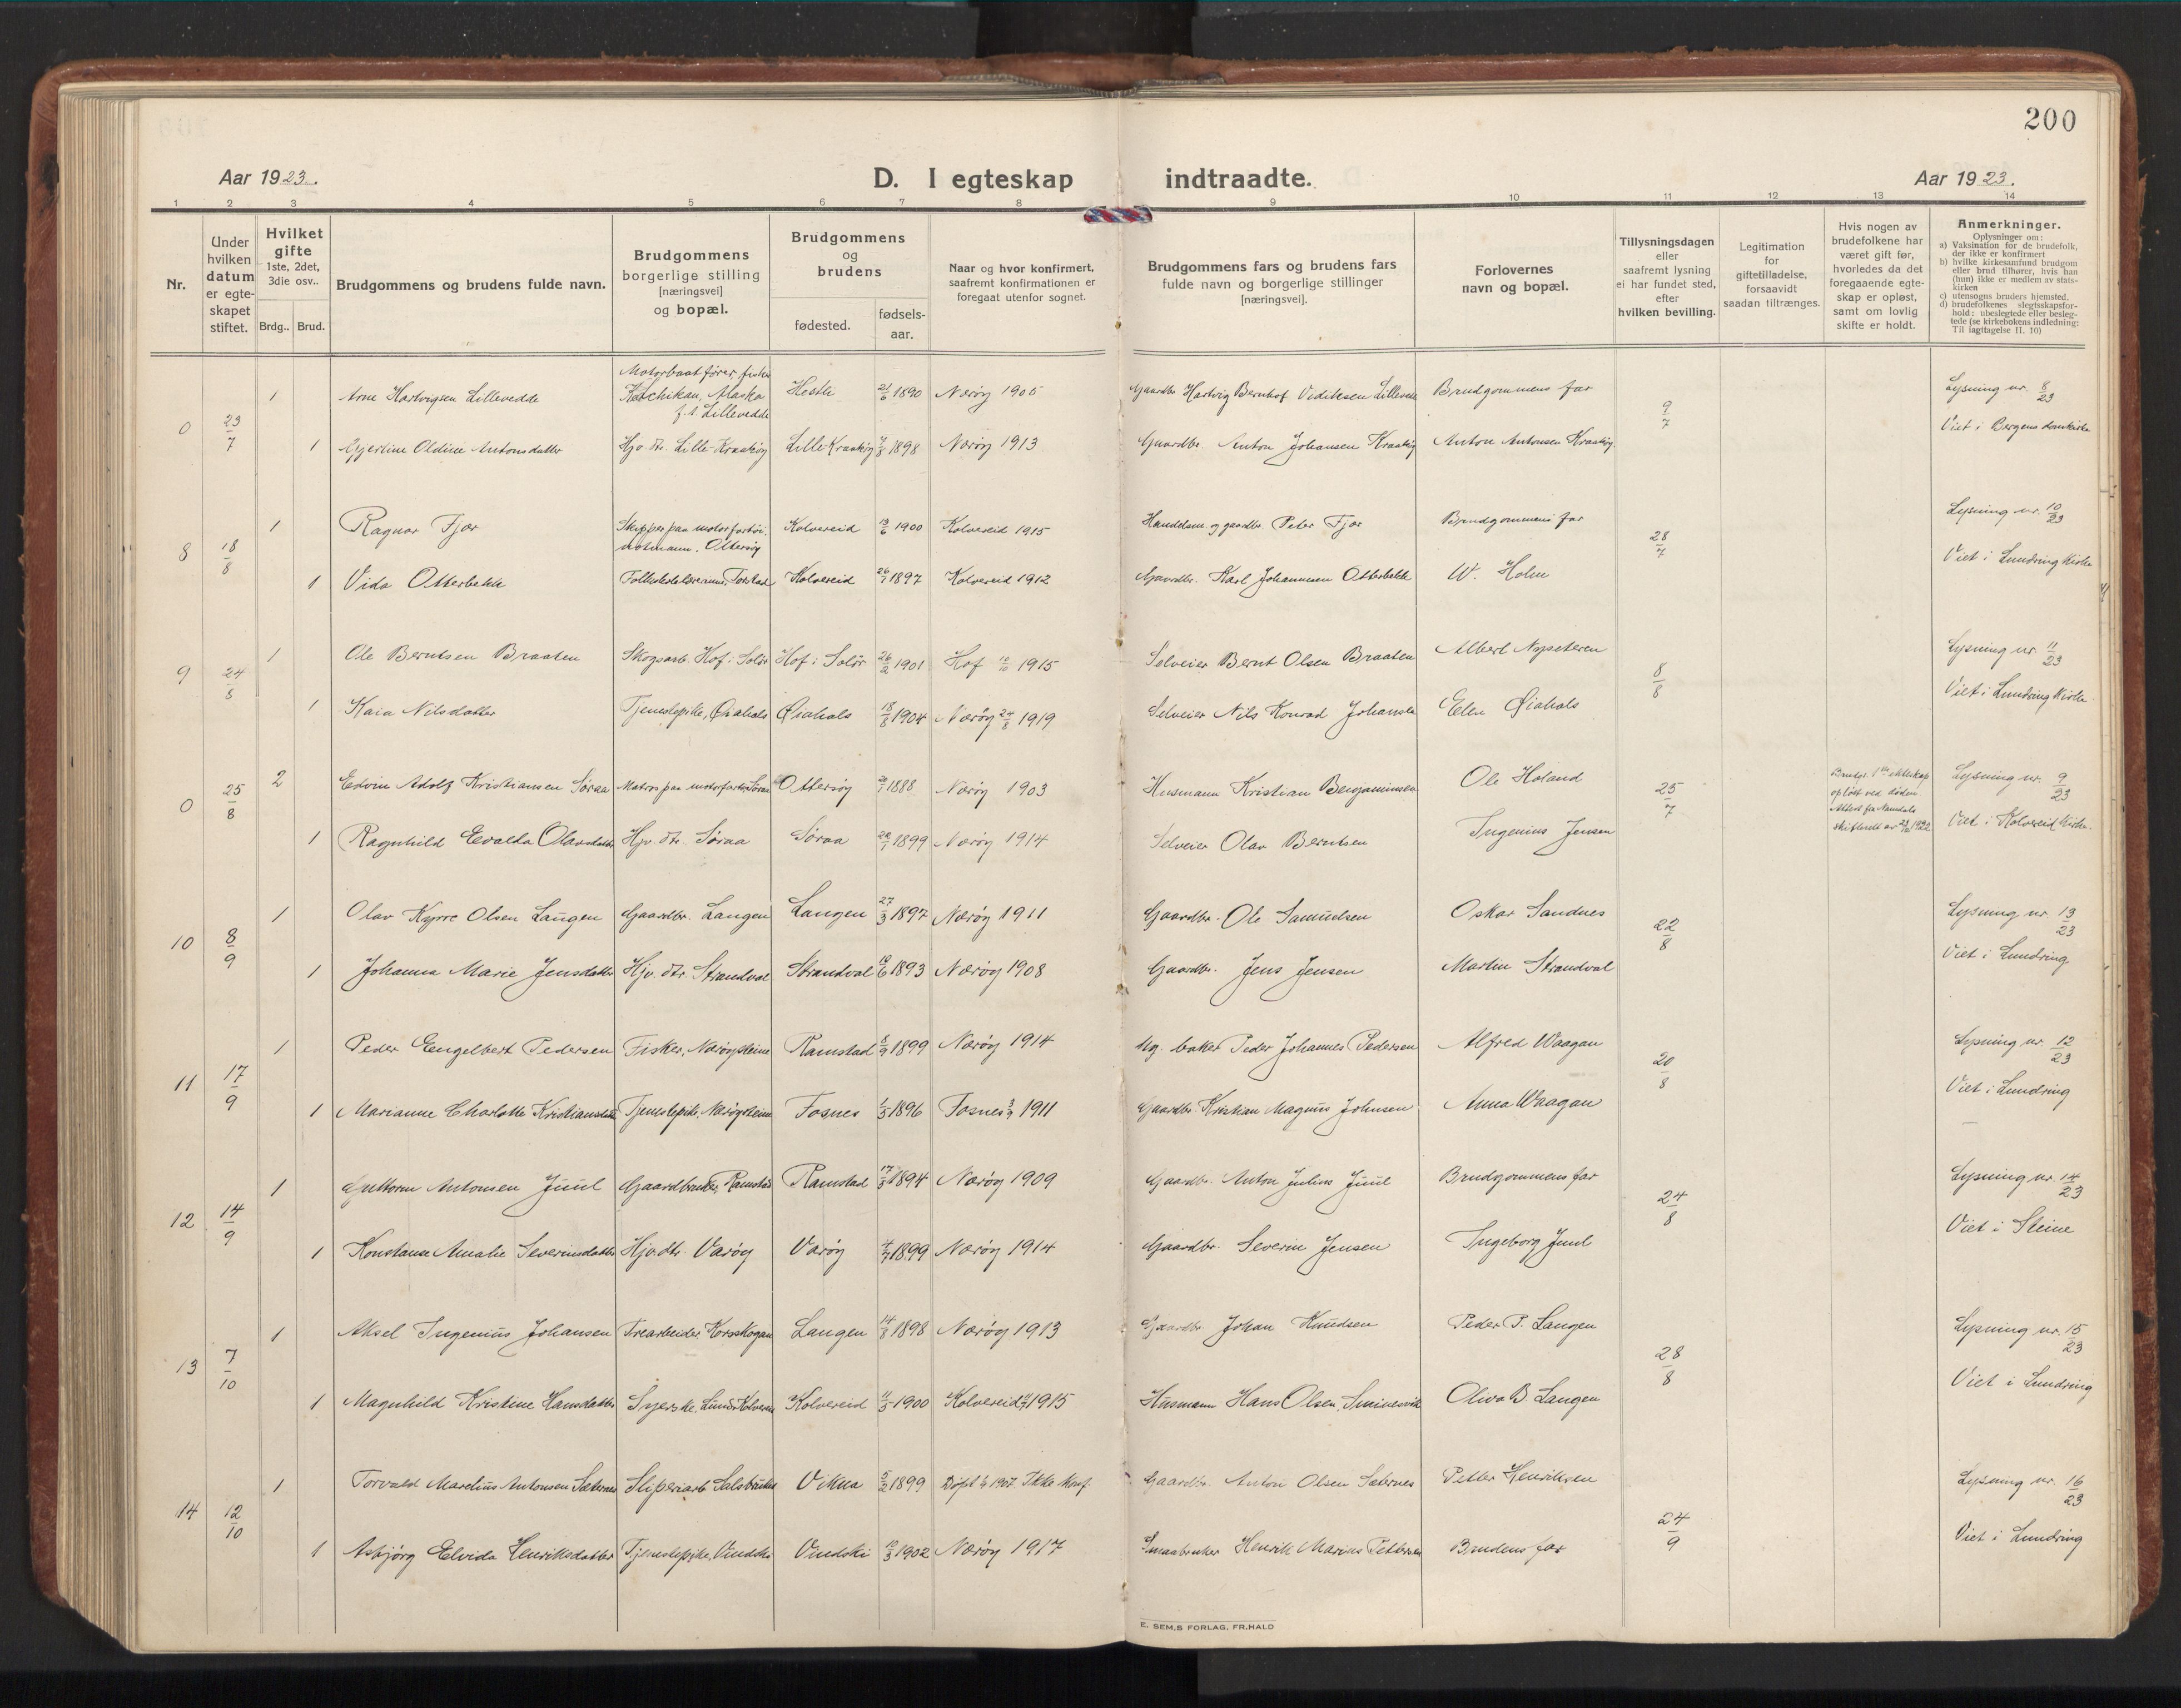 200
Aar 1923.
D. I egteskap indtraadte.
Aar 1923.
1 2 3 4 5 6 7 8 9 10 11 12 13 14
Nr.
Under hvilken datum er egte- skapet stiftet.
Hvilket gifte 1ste, 2det, 3die osv..
Brdg.. Brud.
Brudgommens og brudens fulde navn.
Brudgommens borgerlige stilling [næringsvei] og bopæl.
Brudgommens og brudens
fødested.
fødsels- aar.
Naar og hvor konfirmert, saafremt konfirmationen er foregaat utenfor sognet.
Brudgommens fars og brudens fars fulde navn og borgerlige stillinger [næringsvei].
Forlovernes navn og bopæl.
Tillysningsdagen eller saafremt lysning ei har fundet sted, efter hvilken bevilling.
Legitimation for giftetilladelse, forsaavidt saadan tiltrænges.
Hvis nogen av brudefolkene har været gift før, hvorledes da det foregaaende egte- skap er opløst, samt om lovlig skifte er holdt.
Anmerkninger.
Oplysninger om:
a) Vaksination for de brudefolk, der ikke er konfirmert
b) hvilke kirkesamfund brudgom eller brud tilhører, hvis han (hun) ikke er medlem av stats- kirken
c) utensogns bruders hjemsted.
d) brudefolkenes slegtsskapsfor- hold: ubeslegtede eller besleg- tede (se kirkebokens indledning: Til iagttagelse II. 10)
Motorbaatfører, fisker
1 Arne Hartvigsen Lillevedde Ketchikan, Alaska Hestli 21/6 1890 Nærøy 1905 Gaardbr. Hartvig Bernhof Lillevedde Brudgommens far Lysning nr. 8/23
f. t. Lillevedde
0 23/7 9/7 Viet i Bergens domkirke
1 Gjertine Oldine Antonsdatter Hjv. dtr. Lille-Kraakøy Lille Kraakøy 1898 Nærøy 1913 Gaardbr. Anton Johansen Kraakøy Anton Antonsen Kraakøy.
1 Ragnar Fjær Skipper paa motorfartøi Kolvereid 13/6 1900 Kolvereid 1915 Handelsm. og gaardbr. Peter Fjær Brudgommens far Lysning nr. 10/23
8 18/8 Ottersøy 28/7 Viet i Lundring Kirke
1 Vida Otterbekk Torstad Kolvereid 26/7 1897 Kolvereid 1912 Gaardbr. Karl Johannesen Otterbekk W. Holm
1 Ole Berntsen Braaten Skogsarb. Hof i Solør Hof i Solør 26/2 1901 Hof 1915 Selveier Bernt Olsen Braaten Albert Nypeteren Lysning nr. 11/23
9 24/8 8/8 Viet i Lundring Kirke
1 Kaia Nilsdatter Tjenestepike, Øiahals Øiahals 18/8 1904 Nærøy 24/8 1919 Selveier Nils Konrad Johansen Elen Øiahals
2 Edvin Adolf Kristiansen Søraa Matros paa motorfartøi Søraa Ottersøy 1888 Nærøy 1903 Husmann Kristian Benjaminsen Ole Holand Brudgr. 1ste ekteskap Lysning nr. 9/23
opløst ved døden.
0 25/8 25/7 Attest fra Namdals
1 Ragnhild Evalda Olavsdatter Hjv. dtr. Søraa Søraa 1899 Nærøy 1914 Selveier Olav Berntsen Ingenius Jensen 1922 Viet i Kolvereid Kirke.
1 Olav Kyrre Olsen Langen Gaardbr. Langen Langen 27/3 1897 Nærøy 1911 Gaardbr. Ole Samuelsen Oskar Sandnes Lysning nr. 13/23
10 8/9 22/8 Viet i Lundring
1 Johanna Marie Jensdatter Hjv. dtr. Strandval Strandval 1893 Nærøy 1908 Gaardbr. Jens Jensen Martin Strandval
1 Peder Engelbert Pedersen Fisker, Nærøysteine Ramstad 8/9 1899 Nærøy 1914 Ug. baker Peder Johannes Pedersen Alfred Waagan Lysning nr. 12/23
11 17/9 20/8 Viet i Lundring
1 Marianne Charlotte Kristiansdatter Tjenestepike, Nærøysteine Fosnes 1/5 1896 Fosnes 1911 Gaardbr. Kristian Magnus Johnsen Anna Waagan
1 Guttorm Antonsen Juul Gaardbruker, Ramstad Ramstad 17/3 1894 Nærøy 1909 Gaardbr. Anton Julius Juul Brudgommens far Lysning nr. 14/23
12 14/9 24/8 Viet i Steine
1 Konstanse Amalie Severinsdatter Hjv. dtr. Værøy Værøy 4/7 1899 Nærøy 1914 Gaardbr. Severin Jensen Ingeborg Juul
1 Aksel Ingenius Johansen Trearbeider, Horsskogan Langen 14/8 1898 Nærøy 1913 Gaardbr. Johan Knudsen Peder P. Langen Lysning nr. 15/23
13 7/10 28/8 Viet i Lundring
1 Magnhild Kristine Hansdatter Syerske. Lund i Kolvereid Kolvereid 11/5 1900 Kolvereid 1915 Husmann Hans Olsen, Oliva B. Langen
1 Torvald Marelius Antonsen Sæternes Sliperiarb Salsbruket Vikna 5/2 1899 Døpt 1907 Ikke konf. Gaardbr. Anton Olsen Sæternes Petter Henriksen Lysning nr. 16/23
14 12/10 24/9 Viet i Lundring
1 Asbjørg Elvida Henriksdatter Tjenestepike, Vindski Vindski 1902 Nærøy 1917 Smaabruker Henrik Marius Pettersen Brudens far
E. SEM.S FORLAG, FR.HALD